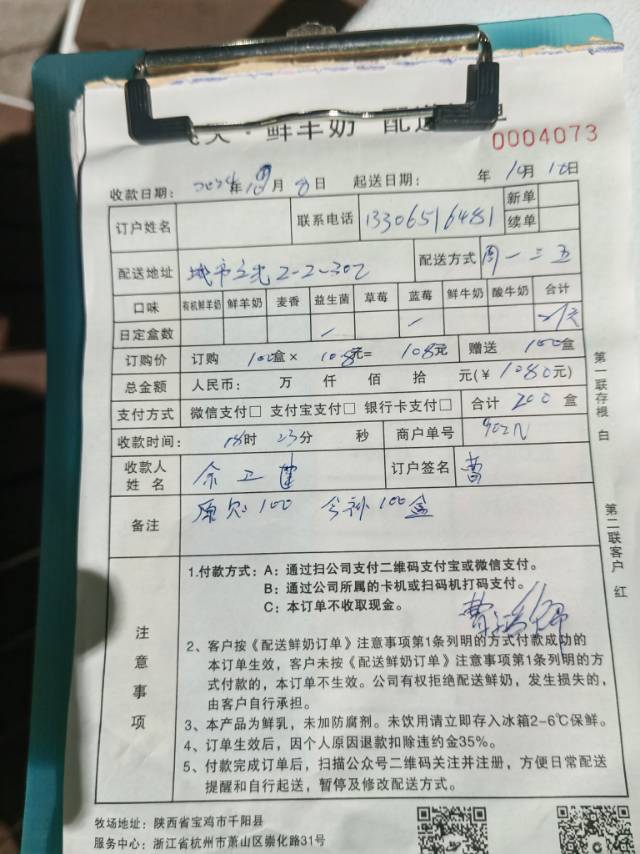 ·鲜羊奶 配送单
0004073
收款日期: 2024年10月8日 起送日期: 年10月10日
订户姓名 联系电话 13306516481 新单
续单
配送地址 城市之光2-2-302 配送方式 周一二五
口味 有机鲜羊奶 鲜羊奶 麦香 益生菌 草莓 蓝莓 鲜牛奶 酸牛奶 合计
日定盒数
订购价 订购 100盒× 10.8元= 1080元 赠送 100盒
总金额 人民币: 万 仟 佰 拾 元(¥1080元)
支付方式 微信支付□ 支付宝支付□ 银行卡支付□ 合计 200 盒
收款时间: 18时 23分 秒 商户单号
收款人
姓 名 订户签名 曹
备注 原欠100 今补100盒
注意事项
1.付款方式: A: 通过扫公司支付二维码支付宝或微信支付。
B: 通过公司所属的卡机或扫码机打码支付。
C: 本订单不收取现金。
2、客户按《配送鲜奶订单》注意事项第1条列明的方式付款成功的
本订单生效，客户未按《配送鲜奶订单》注意事项第1条列明的方
式付款的，本订单不生效。公司有权拒绝配送鲜奶，发生损失的，
由客户自行承担。
3、本产品为鲜乳，未加防腐剂。未饮用请立即存入冰箱2-6℃保鲜。
4、订单生效后，因个人原因退款扣除违约金35%。
5、付款完成订单后，扫描公众号二维码关注并注册，方便日常配送
提醒和自行起送，暂停及修改配送方式。
牧场地址: 陕西省宝鸡市千阳县
服务中心: 浙江省杭州市萧山区崇化路31号
第一联存根 白
第二联客户 红